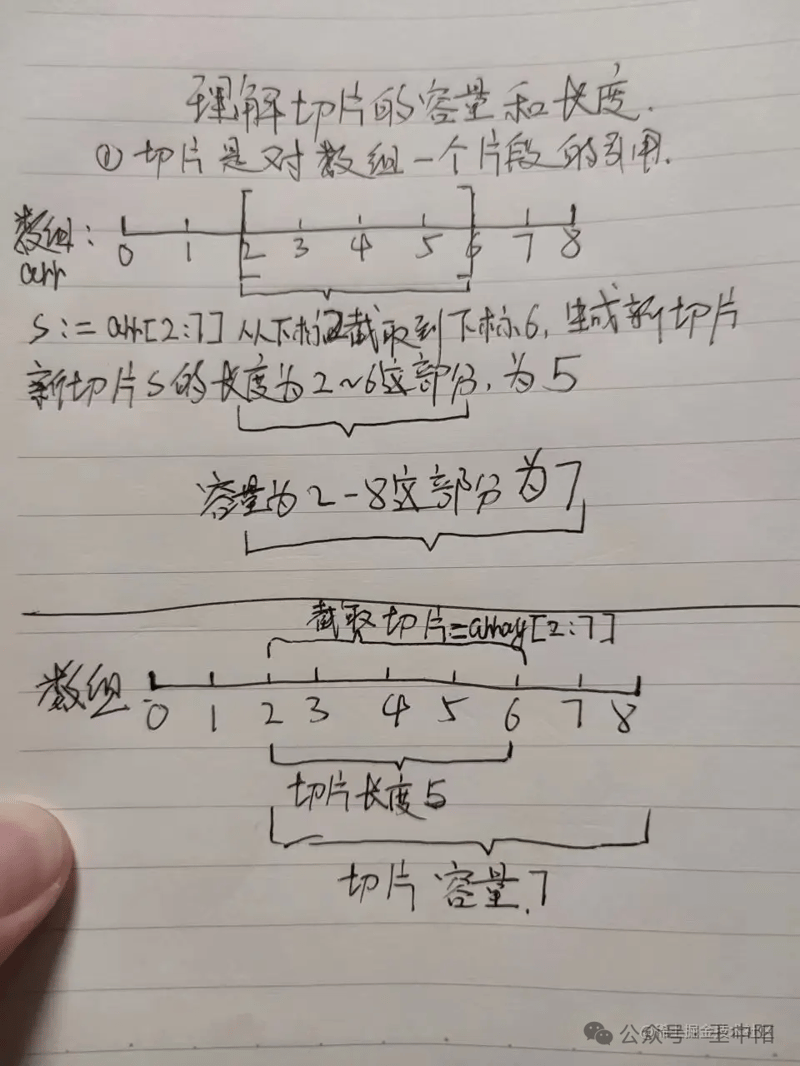 理解切片的容量和长度.
① 切片是对数组一个片段的引用.
数组:
arr
0 1 2 3 4 5 6 7 8
s := arr[2:7] 从下标2截取到下标6, 生成新切片
新切片s的长度为2~6这部分, 为5
容量为2-8这部分为7
截取切片=array[2:7]
数组
0 1 2 3 4 5 6 7 8
切片长度5
切片容量7
公众号·王中阳